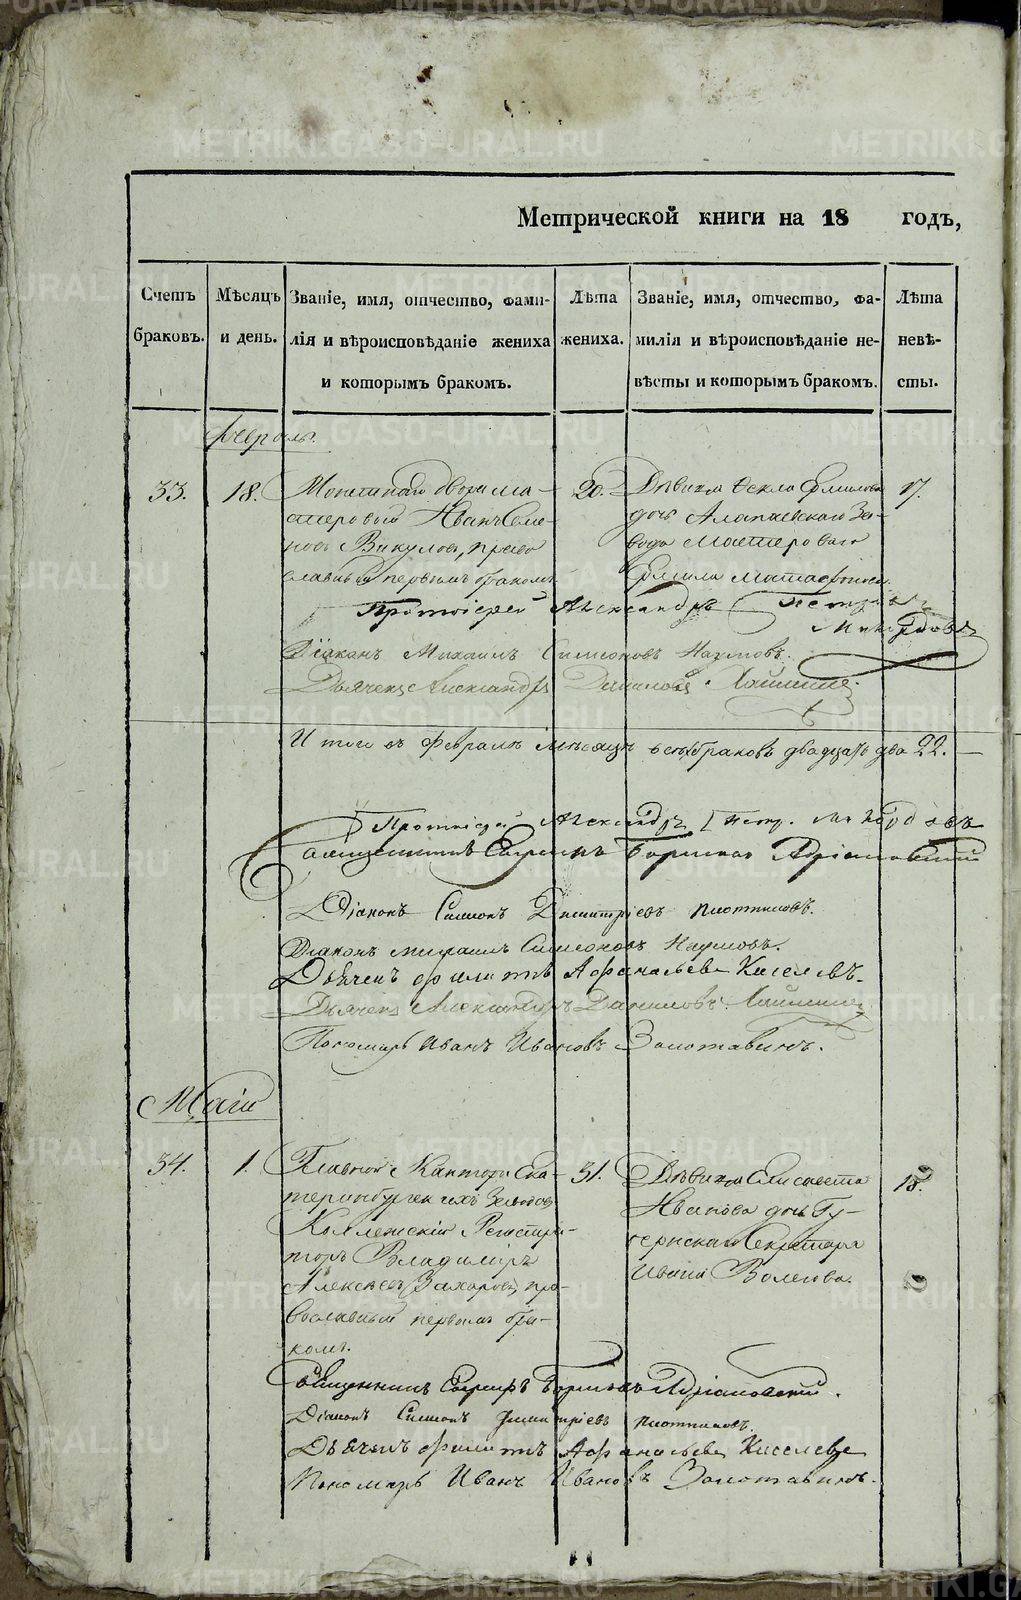 Метрической книги на 18 годъ,
Счетъ браковъ.
Мѣсяцъ и день.
Званіе, имя, отчество, фами-
лія и вѣроисповѣданіе жениха
и которымъ бракомъ.
Лѣта жениха.
Званіе, имя, отчество, фа-
милія и вѣроисповѣданіе не-
вѣсты и которымъ бракомъ.
Лѣта невѣ-
сты.
Февраль.
33.
18.
Монетнаго двора ма-
стеровый Иванъ Семе-
новъ Викуловъ, право
славный первымъ бракомъ
20.
Дѣвица Ѳекла Ермилова
дочь Алапаевскаго За-
вода Мастероваго
Ермила
17.
Протоіерей Александръ Петровъ
Діаконъ Михаилъ Симеоновъ Наумовъ.
Дьячекъ Александръ Даниловъ
Итого въ Февралѣ мѣсяцѣ браковъ двадцать два 22.
Протоіерей Александръ Петр.
Священникъ Борисовъ Адріановскій
Діаконъ Симеонъ Димитріевъ Плотниковъ.
Діаконъ Михаилъ Симеоновъ Наумовъ.
Дьячекъ Филиппъ Афанасьевъ Киселевъ.
Дьячекъ Александръ Даниловъ
Пономарь Иванъ Ивановъ Золотавинъ.
Маій
34.
1.
Главной Канторы Ека-
теринбургскихъ Заводовъ
Коллежскій Регистра-
торъ Владиміръ
Алексѣевъ Захаровъ, пра-
вославный первымъ бра-
комъ.
31.
Дѣвица Елисавета
Иванова дочь Гу-
бернскаго Секретаря
Ивана Волегова.
18.
Священникъ Борисовъ Адріановскій.
Діаконъ Симеонъ Димитріевъ Плотниковъ.
Дьячекъ Филиппъ Афанасьевъ Киселевъ
Пономарь Иванъ Ивановъ Золотавинъ.
METRIKI.GASO-URAL.RU